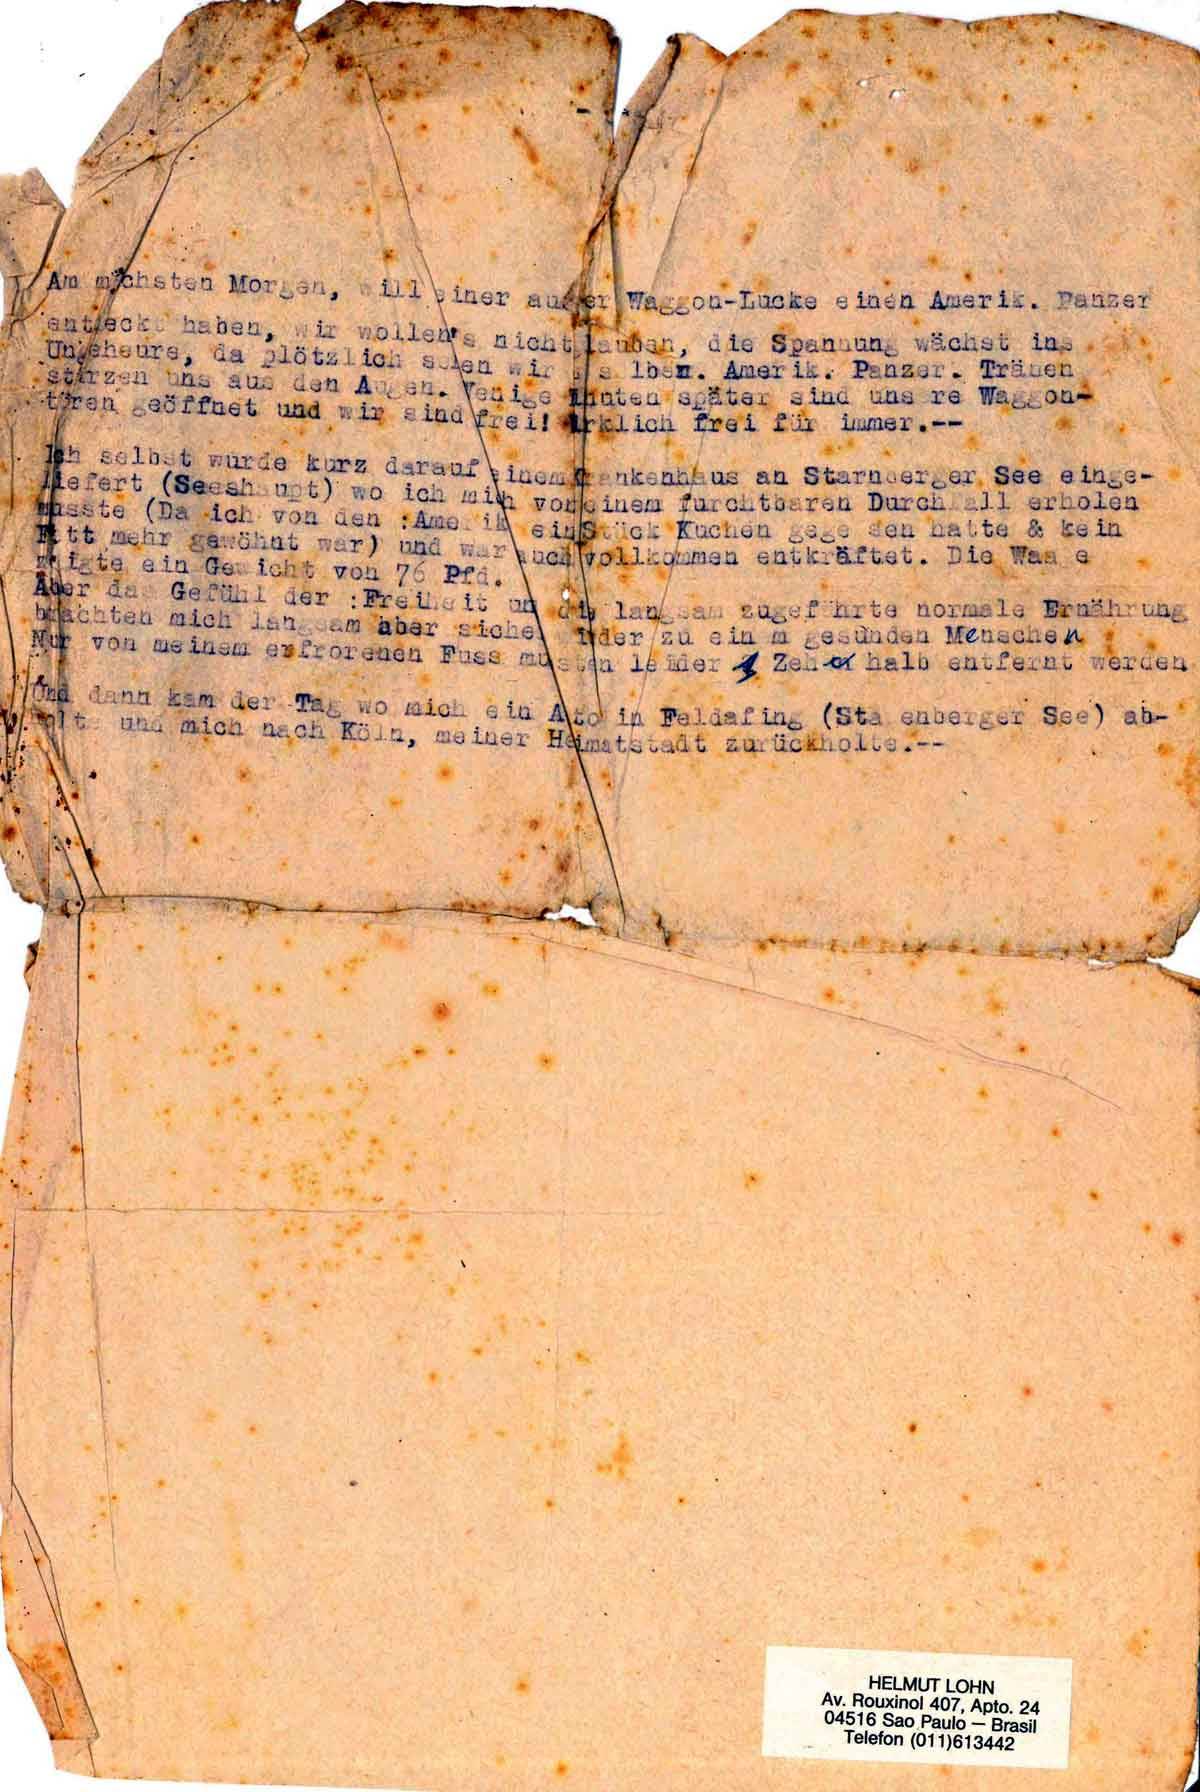 Am nächsten Morgen, will einer aus der Waggon-Lucke einen Amerik. Panzer
entdeckt haben, wir wollen's nicht glauben, die Spannung wächst ins
Ungeheure, da plötzlich sehen wir selben. Amerik. Panzer. Tränen
stürzen uns aus den Augen. Wenige Minuten später sind unsere Waggon-
türen geöffnet und wir sind frei! Wirklich frei für immer.--
Ich selbst wurde kurz darauf einem Krankenhaus an Starnberger See einge-
liefert (Seeshaupt) wo ich mich von einem furchtbaren Durchfall erholen
musste (Da ich von den :Amerik ein Stück Kuchen gegessen hatte & kein
Fett mehr gewöhnt war) und war auch vollkommen entkräftet. Die Waage
zeigte ein Gewicht von 76 Pfd.
Aber das Gefühl der :Freiheit und die langsam zugeführte normale Ernährung
brachten mich langsam aber sicher wieder zu einem gesunden Menschen
Nur von meinem erfrorenen Fuss mussten leider Zeh halb entfernt werden
Und dann kam der Tag wo mich ein Auto in Feldafing (Starenberger See) ab-
holte und mich nach Köln, meiner Heimatstadt zurückholte.--
HELMUT LOHN
Av. Rouxinol 407, Apto. 24
04516 Sao Paulo — Brasil
Telefon (011)613442